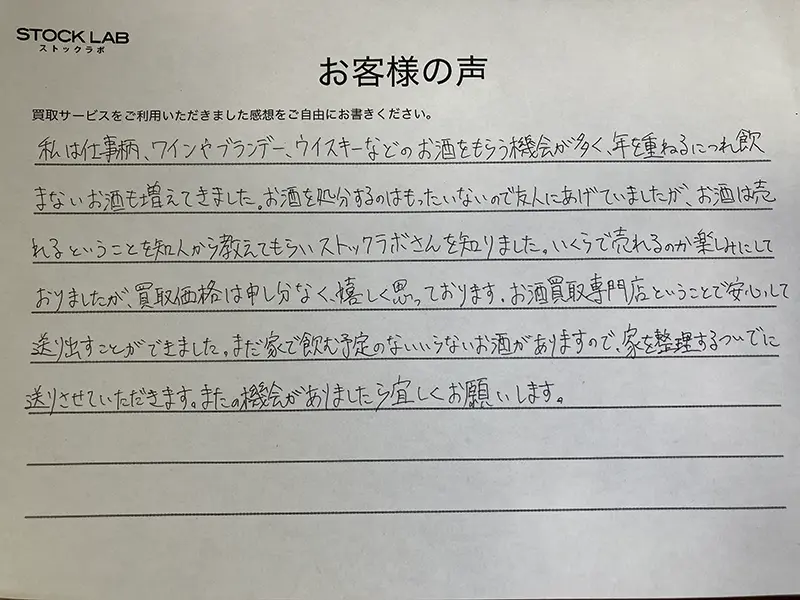 STOCK LAB
ストックラボ
お客様の声
買取サービスをご利用いただきました感想をご自由にお書きください。
私は仕事柄、ワインやブランデー、ウイスキーなどのお酒をもらう機会が多く、年を重ねるにつれ飲
まないお酒も増えてきました。お酒を処分するのはもったいないので友人にあげていましたが、お酒は売
れるということを知人から教えてもらいストックラボさんを知りました。いくらで売れるのか楽しみにして
おりましたが、買取価格は申し分なく、嬉しく思っております。お酒買取専門店ということで安心して
送り出すことができました。まだ家で飲む予定のないいらないお酒がありますので、家を整理するついでに
送りさせていただきます。またの機会がありましたら宜しくお願いします。